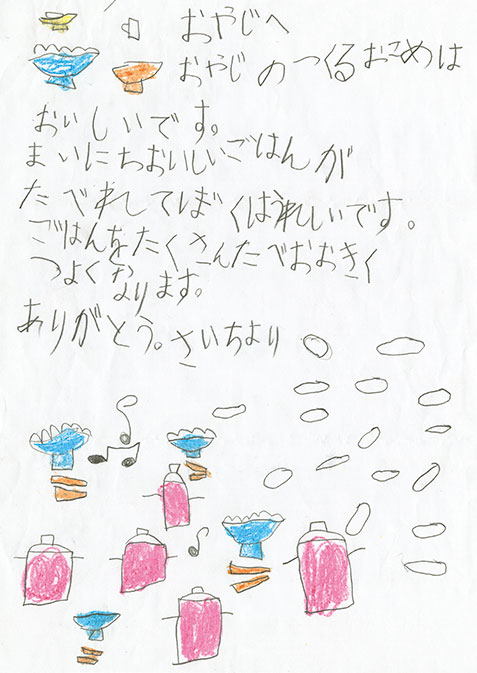 おやじへ
おやじのつくるおこめは
おいしいです。
まいにちおいしいごはんが
たべれてぼくはうれしいです。
ごはんをたくさんたべおおきく
つよくな
ります。
ありがとう。さいちより